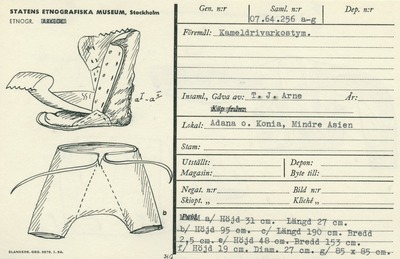 STATENS ETNOGRAFISKA MUSEUM, Stockholm
ETNOGR.
a¹ - a²
b
ELANDERS, GBG. 5279. 1. 54.
Gen. n:r Saml. n:r Dep. n:r
07.64.256 a-g
Föremål: Kameldrivarkostym.
Insaml., Gåva av: T. J. Arne År:
Köp från:
Lokal: Adana o. Konia, Mindre Asien
Stam:
Utställt: Depon:
Magasin: Byte till:
Negat. n:r Bild n:r
Skiopt. „ Kliché „
Mått a/ Höjd 31 cm. Längd 27 cm.
b/ Höjd 95 cm. c/ Längd 190 cm. Bredd
2,5 cm. e/ Höjd 48 cm. Bredd 153 cm.
f/ Höjd 19 cm. Diam. 27 cm. g/ 85 x 85 cm.